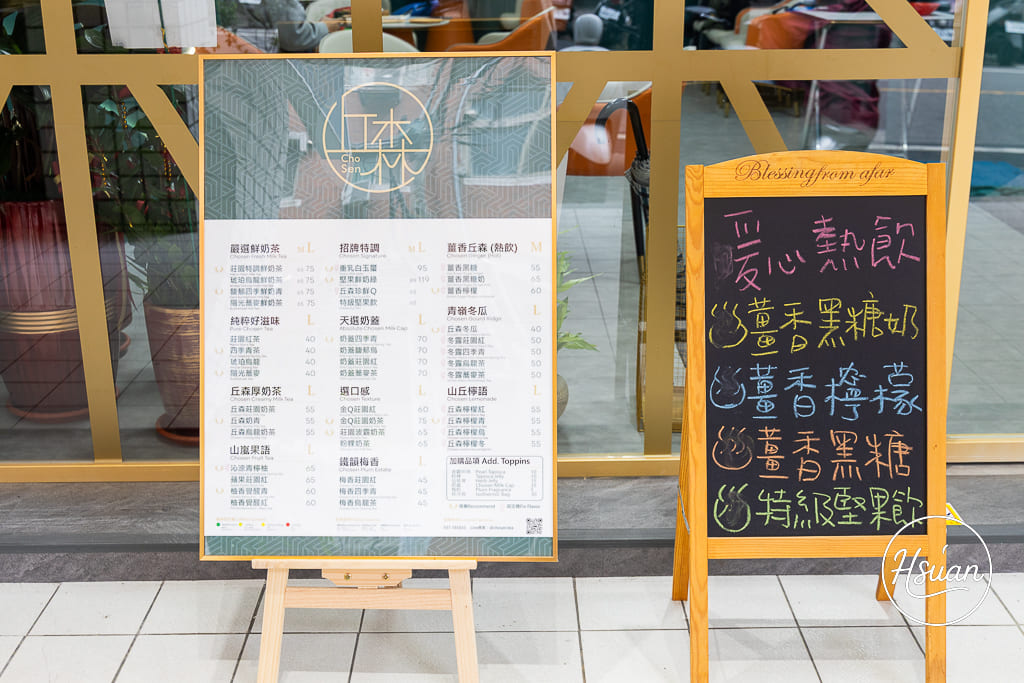 丘森
Cho
Sen
嚴選鮮奶茶 M L
Chosen Fresh Milk Tea
莊園特調鮮奶茶 65 75
琥珀烏龍鮮奶茶 65 75
馥郁四季鮮奶青 65 75
陽光蕎麥鮮奶茶 65 75
純粹好滋味 L
Pure Chosen Tea
莊園紅茶 40
四季青茶 40
琥珀烏龍 40
陽光蕎麥 40
丘森厚奶茶 L
Chosen Creamy Milk Tea
丘森莊園奶茶 55
丘森奶青 55
丘森烏龍奶茶 55
山嵐果語 L
Chosen Fruit Tea
沁涼青檸柚 65
蘋果莊園紅 65
柚香覺醒青 60
柚香覺醒紅 60
招牌特調 M L
Chosen Signature
重乳白玉薑 95
堅果鮮奶綠 119
丘森珍鮮Q
特級堅果飲
天選奶蓋 L
Absolute Chosen Milk Cap
奶蓋四季青 70
奶蓋馥郁烏 70
奶蓋莊園紅 70
奶蓋蕎麥茶 70
選口感 L
Chosen Texture
金Q莊園紅 60
金Q莊園奶茶 75
莊園波霸奶茶 65
粉粿奶茶 65
鐵韻梅香 L
Chosen Plum Estate
梅香莊園紅 45
梅香四季青 45
梅香烏龍茶 45
薑香丘森 (熱飲) M
Chosen Ginger (Hot)
薑香黑糖 55
薑香黑糖奶 65
薑香檸檬 60
青嶺冬瓜 L
Chosen Gourd Ridge
丘森冬瓜 40
冬露莊園紅 50
冬露四季青 50
冬露烏龍茶 50
冬露蕎麥茶 50
山丘檸語 L
Chosen Lemonade
丘森檸檬紅 55
丘森檸檬青 55
丘森檸檬烏 55
丘森檸檬冬 55
加購品項 Add. Toppins
Blessing from afar
愛心熱飲
薑香黑糖奶
薑香檸檬
薑香黑糖
特級堅果飲
Hsuan